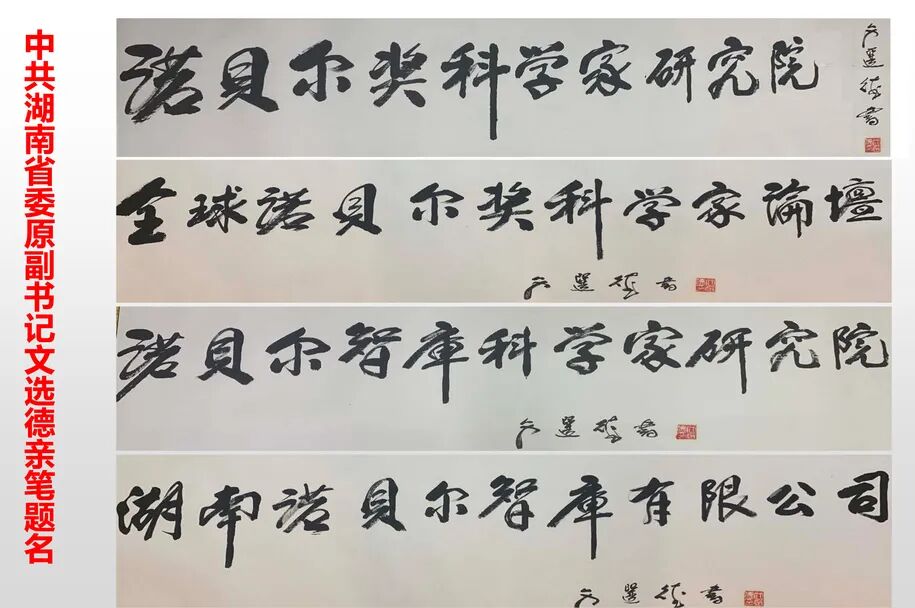 中共湖南省委原副书记文选德亲笔题名
诺贝尔奖科学家研究院
文選德書
全球诺贝尔奖科学家論壇
文選德書
诺贝尔智庫科学家研究院
文選德書
湖南诺贝尔智庫有限公司
文選德書